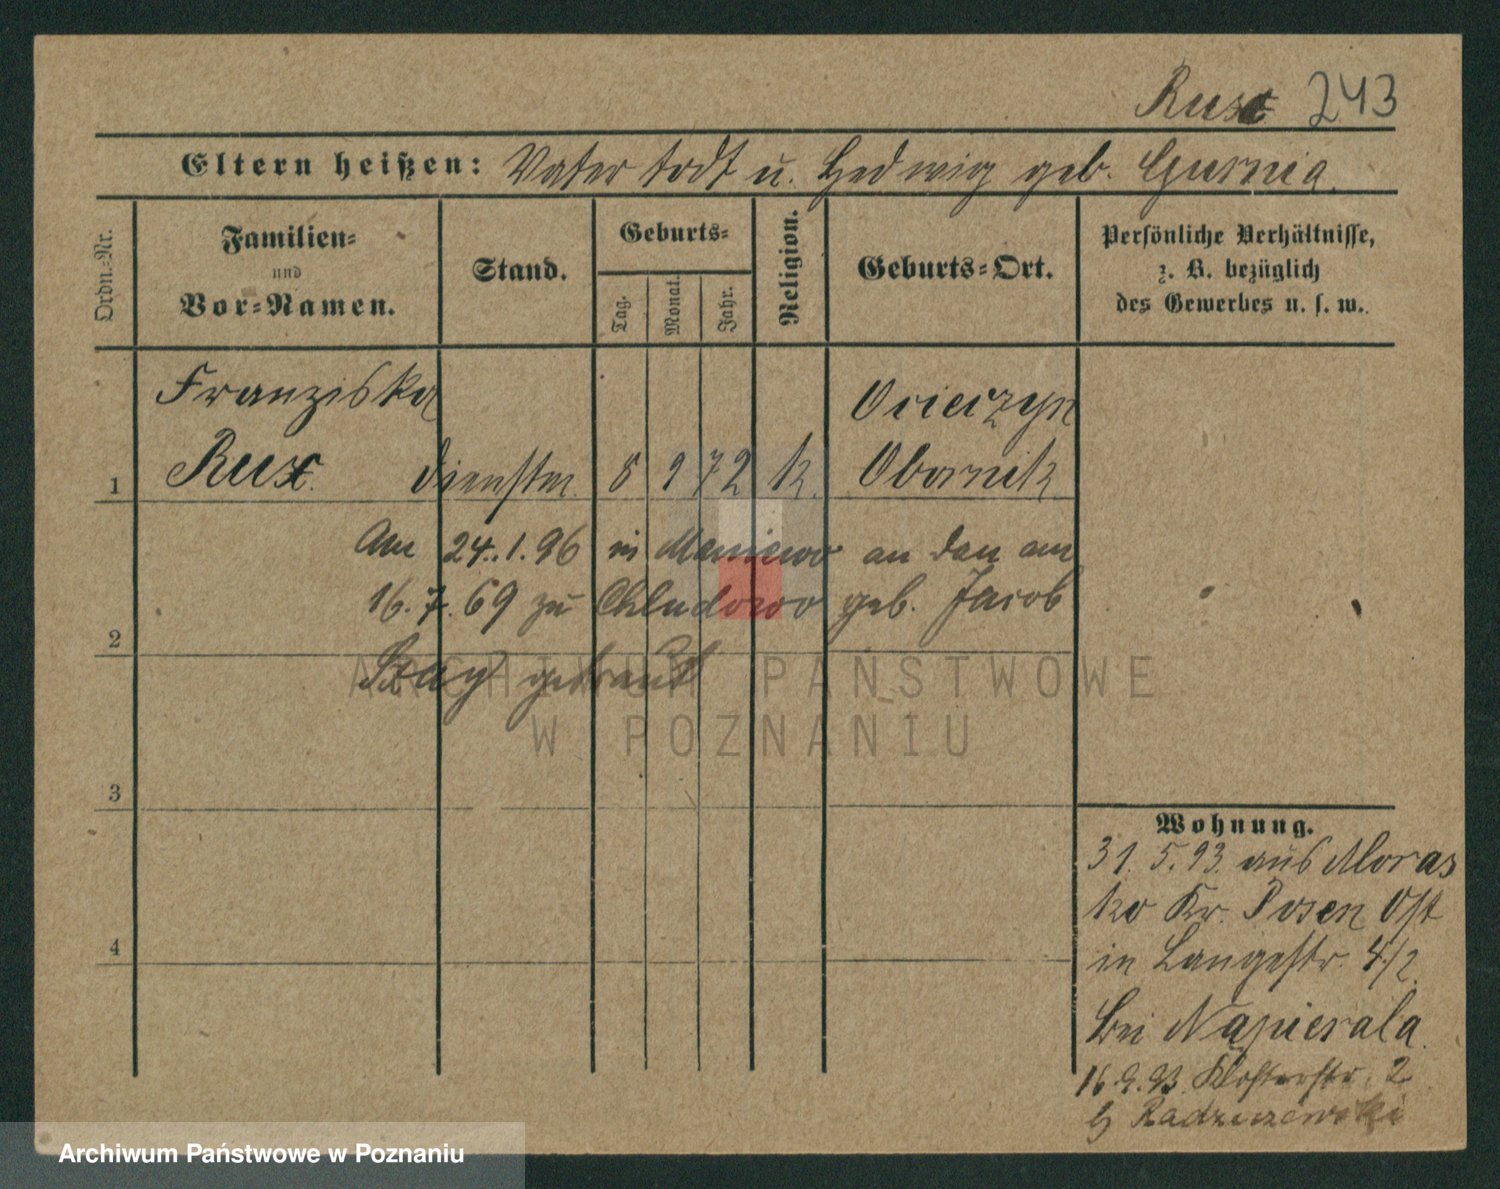 Rux 243
Eltern heißen: Vater todt u. Hedwig geb. Gurnia
Ordn.=Nr.
Familien=
und
Vor=Namen.
Stand.
Geburts=
Tag.
Monat.
Jahr.
Religion.
Geburts=Ort.
Persönliche Verhältnisse,
z. B. bezüglich
des Gewerbes u. s. w.
Franziska Ocieczyn
1 Rux. dienstm. 8 9 72 k. Obornik
Am 24.1.96 in Maniewo an den am
16.7.69 zu Chludowo geb. Jacob
2
getraut
3
Wohnung.
31.5.93. aus Moras
ko Kr. Posen Ost
4
in Langestr. 4/2.
bei Napierala.
16.9.93. Klosterstr. 2
b Radziszewski
ARCHIWUM PAŃSTWOWE
W POZNANIU
Archiwum Państwowe w Poznaniu